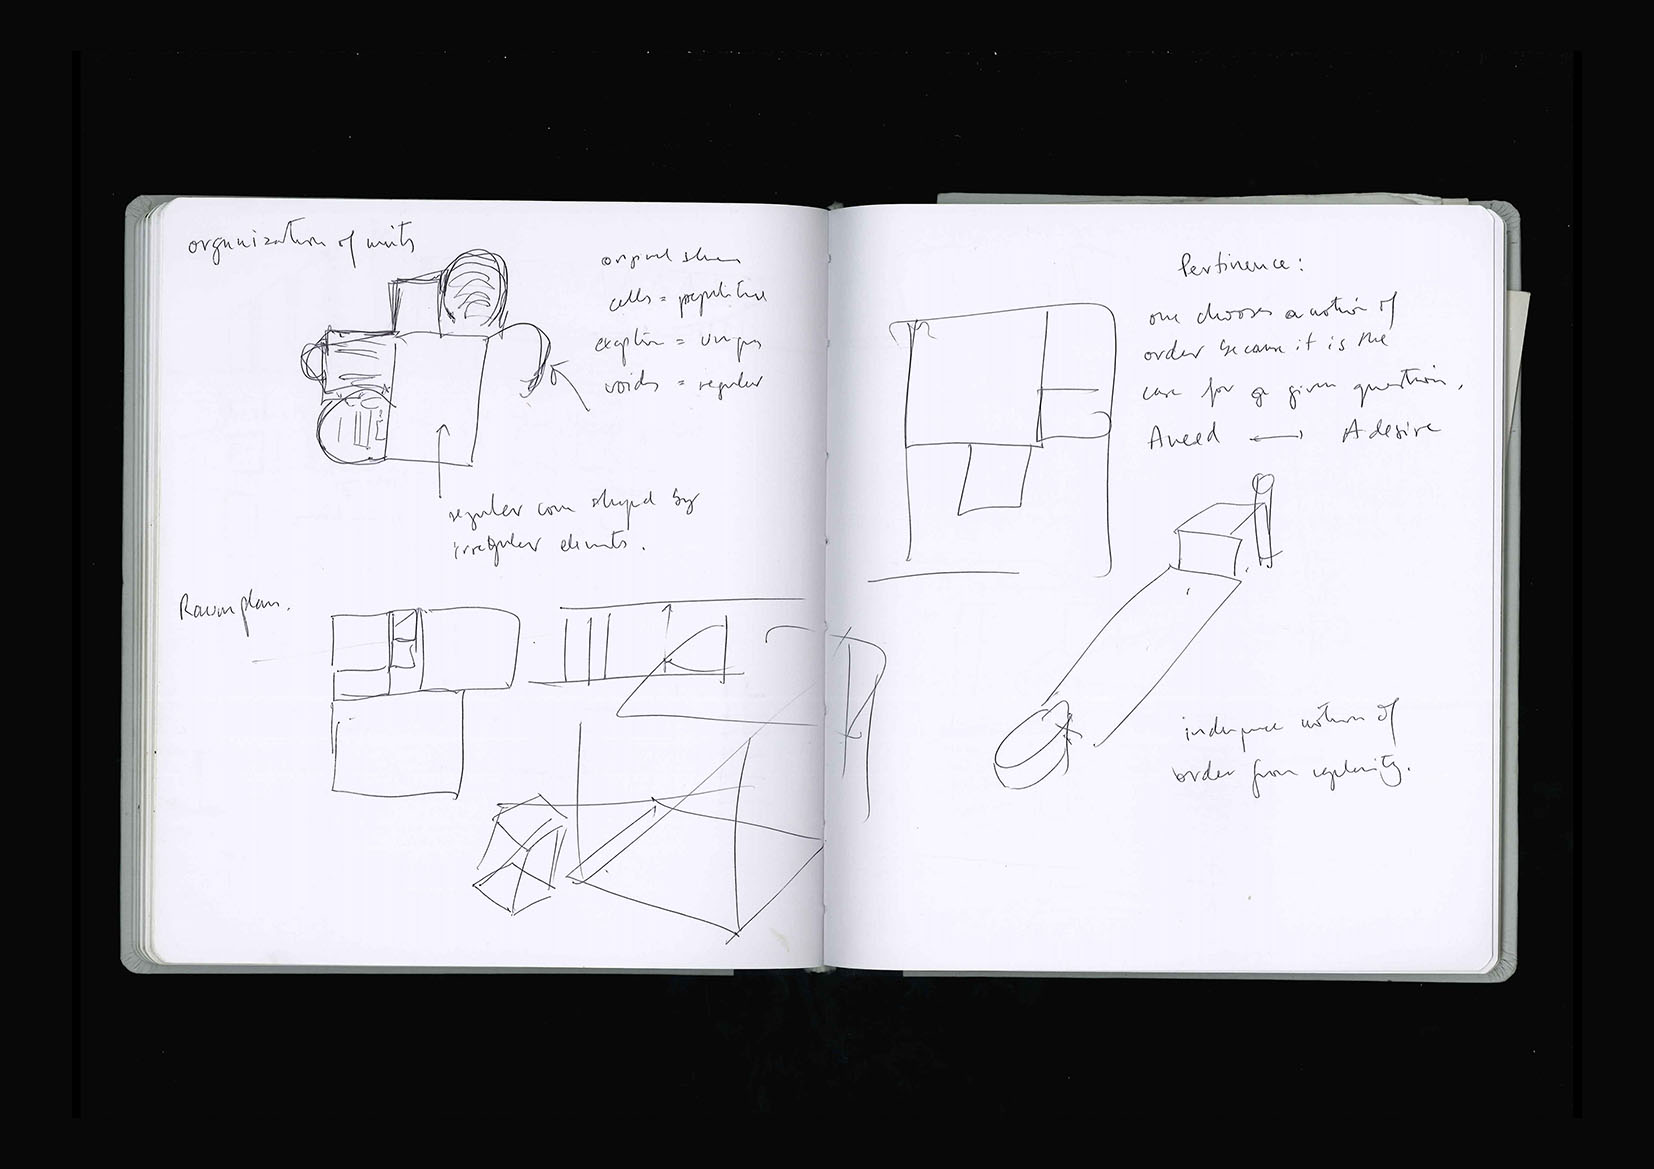 organization of units
cells = repetitive
exception = unique
voids = regular
regular core shaped by
irregular elements.
plan.
Pertinence:
one chooses a notion of
order because it is the
case for a given question.
A need ⟷ A desire
notion of
order from regularity.